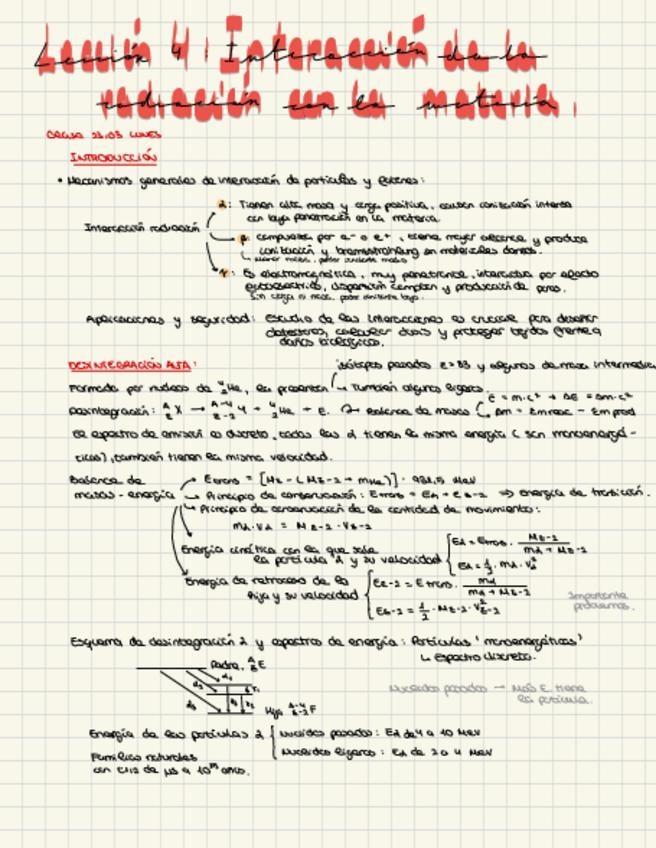 Lección 4: Interacción de la
radiación con la materia.
INTRODUCCIÓN
• Mecanismos generales de interacción de partículas y fotones:
α: Tienen alta masa y carga positiva, causan ionización intensa
con baja penetración en la materia.
Interacción radiación
β: compuesta por e- o e+, tiene mayor alcance y produce
ionización y bremsstrahlung en materiales densos.
γ: Es electromagnética, muy penetrante, interactúa por efecto
fotoeléctrico, dispersión compton y producción de pares.
Sin carga ni masa, poder ionizante bajo.
Aplicaciones y seguridad: Estudio de las interacciones es crucial para diseñar
detectores, calcular dosis y proteger tejidos frente a
daños biológicos.
DESINTEGRACIÓN ALFA:
isótopos pesados Z>83 y algunos de masa intermedia
Formada por núcleos de ⁴₂He, la presentan ↳ También algunos ligeros.
E = m·c² → ΔE = Δm·c²
Desintegración: ᴬ_Z X → ᴬ⁻⁴_Z-2 Y + ⁴₂He + E. → Balance de masas Δm = Σm reac − Σm prod
El espectro de emisión es discreto, todas las α tienen la misma energía (son monoenergé-
ticas), también tienen la misma velocidad.
Balance de
masas-energía
E trans = [M_Z − (M_Z-2 + m_He)] · 931,5 MeV
Principio de conservación: E trans = E_α + E_Z-2 ⇒ energía de transición.
Principio de conservación de la cantidad de movimiento:
m_α · v_α = M_Z-2 · v_Z-2
Energía cinética con la que sale
la partícula α y su velocidad
E_α = E trans · M_Z-2 / (m_α + M_Z-2)
E_α = 1/2 · m_α · v_α²
Energía de retroceso de la
hija y su velocidad
E_Z-2 = E trans · m_α / (m_α + M_Z-2)
E_Z-2 = 1/2 · M_Z-2 · v²_Z-2
Importante
problemas.
Esquema de desintegración α y espectros de energía: Partículas 'monoenergéticas'
↳ Espectro discreto.
Padre, ᴬ_Z E
Hija ᴬ⁻⁴_Z-2 F
Nucleidos pesados → Más E tiene
la partícula.
Energía de las partículas α
Nucleidos pesados: E_α de 4 a 10 MeV
Nucleidos ligeros: E_α de 2 a 4 MeV
Familias naturales
con t1/2 de μs a 10¹⁰ años.